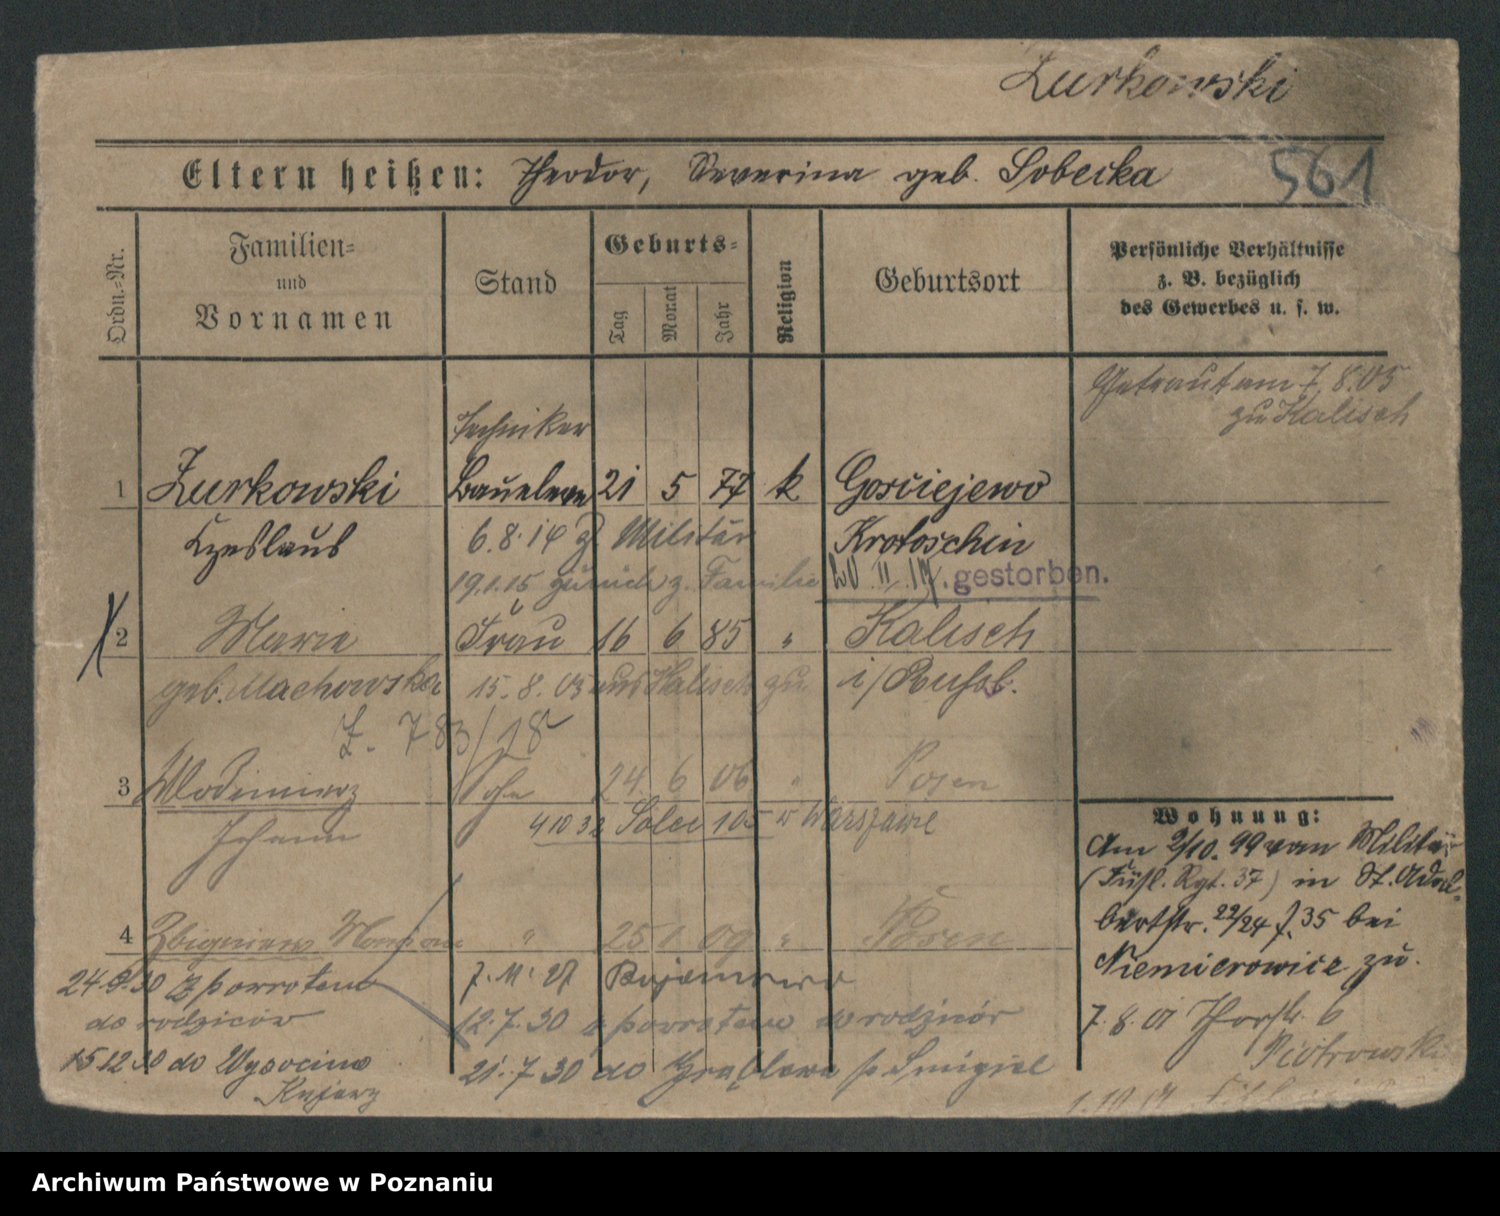 Zurkowski
Eltern heißen: Theodor, Severina geb. Sobecka
561
Ordn.=Nr.
Familien= und Vornamen
Stand
Geburts=
Tag
Monat
Jahr
Religion
Geburtsort
Persönliche Verhältnisse z. B. bezüglich des Gewerbes u. s. w.
Getraut am 7.8.05
zu Kalisch
Techniker
1 Zurkowski Baueleve 21 5 77 k Gorciejewo
Czeslaus 6.8.14 z. Militär Krotoschin
19.1.15 zurück z. Familie 20 11 17. gestorben.
2 Marie Frau 16 6 85 " Kalisch
geb. Machowska 15.8.05 aus Kalisch zu i/Russl.
Z. 783/18
3 Wlodimierz Sohn 24 6 06 " Posen
Johann 4 10 32 Solec 105 w Warszawie
4 Zbigniew " 25 1 09 " Posen
24.9.30 z powrotem 7.11.27
do rodziców 12.7.30 z powrotem do rodziców
15 12 30 do Wysocina 21.7.30 do p Śmigiel
Wohnung:
Am 2/10.99 vom Militär
(Füsl. Rgt. 37) in St. Adal=
bertstr. 22/24 f. 35 bei
Niemierowicz zu.
7.8.01 6
Piotrowski
Archiwum Państwowe w Poznaniu